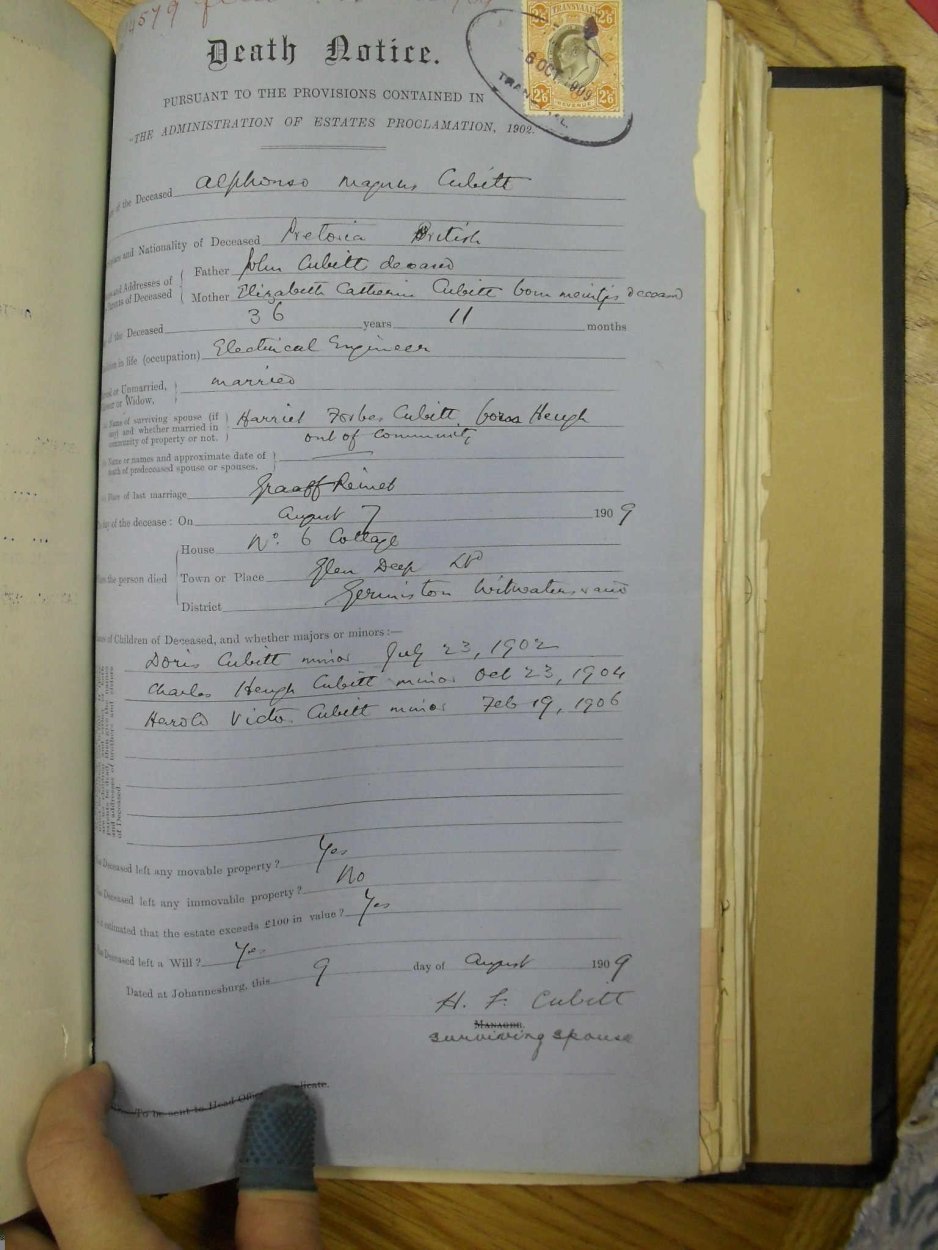 579
Death Notice.
TRANSVAAL
2/6 2/6
6 OCT 1909
2/6 REVENUE 2/6
PURSUANT TO THE PROVISIONS CONTAINED IN
"THE ADMINISTRATION OF ESTATES PROCLAMATION, 1902.
of the Deceased Alphonso Magnus Cubitt
and Nationality of Deceased Pretoria British
and Addresses of Parents of Deceased Father John Cubitt deceased
Mother Elizabeth Catherine Cubitt born Meintjes deceased
of the Deceased 36 years 11 months
in life (occupation) Electrical Engineer
or Unmarried, or Widow, married
Name of surviving spouse (if any) and whether married in community of property or not. Harriet Forbes Cubitt born Heugh
out of community
Name or names and approximate date of death of predeceased spouse or spouses.
Place of last marriage Graaff Reinet
of the decease: On August 7 1909
House No. 6 Cottage
the person died Town or Place Glen Deep Ld
District Germiston Witwatersrand
of Children of Deceased, and whether majors or minors:—
Doris Cubitt minor July 23, 1902
Charles Heugh Cubitt minor Oct 23, 1904
Harold Victor Cubitt minor Feb 19, 1906
and addresses of brothers and sisters
of Deceased.
Deceased left any movable property? Yes
Deceased left any immovable property? No
estimated that the estate exceeds £100 in value? Yes
Deceased left a Will? Yes
Dated at Johannesburg, this 9 day of August 1909
H. F. Cubitt
Manager.
surviving spouse
To be sent to Head Office